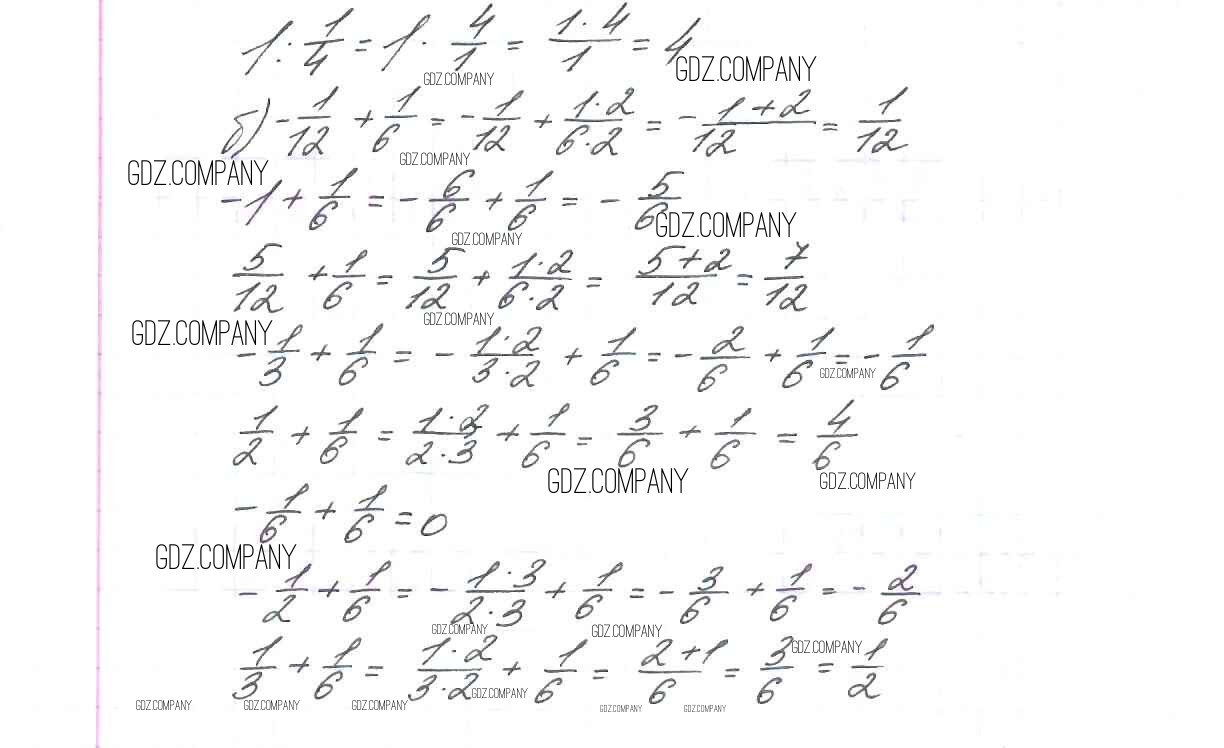 1 : 1/4 = 1 · 4/1 = (1 · 4)/1 = 4
GDZ.COMPANY GDZ.COMPANY
б) -1/12 + 1/6 = -1/12 + (1·2)/(6·2) = -(1+2)/12 = 1/12
GDZ.COMPANY GDZ.COMPANY
-1 + 1/6 = -6/6 + 1/6 = -5/6
GDZ.COMPANY GDZ.COMPANY
5/12 + 1/6 = 5/12 + (1·2)/(6·2) = (5+2)/12 = 7/12
GDZ.COMPANY GDZ.COMPANY
-1/3 + 1/6 = -(1·2)/(3·2) + 1/6 = -2/6 + 1/6 = -1/6
GDZ.COMPANY
1/2 + 1/6 = (1·2)/(2·3) + 1/6 = 3/6 + 1/6 = 4/6
GDZ.COMPANY GDZ.COMPANY
-1/6 + 1/6 = 0
GDZ.COMPANY
-1/2 + 1/6 = -(1·3)/(2·3) + 1/6 = -3/6 + 1/6 = -2/6
GDZ.COMPANY GDZ.COMPANY GDZ.COMPANY
1/3 + 1/6 = (1·2)/(3·2) + 1/6 = (2+1)/6 = 3/6 = 1/2
GDZ.COMPANY
GDZ.COMPANY GDZ.COMPANY GDZ.COMPANY GDZ.COMPANY GDZ.COMPANY